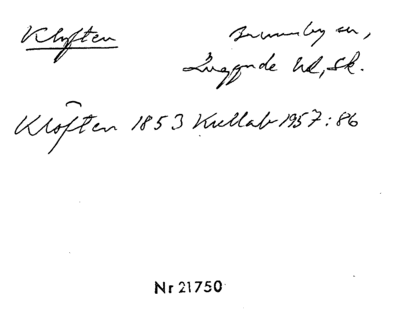 Klyften Brunnby sn,
Luggude hd, Sk.
Klöften 1853 Kullab 1957:86
Nr 21750